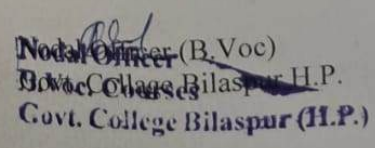 Nodal Officer (B.Voc)
Govt. College Bilaspur H.P.
Govt. College Bilaspur (H.P.)